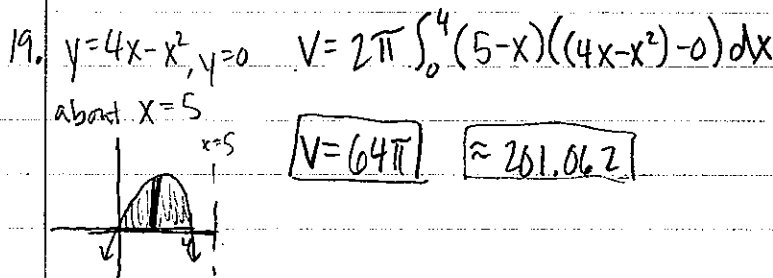 19. y=4x-x², y=0 V=2π∫₀⁴(5-x)((4x-x²)-0)dx
about x=5
x=5
V=64π ≈201.062
4